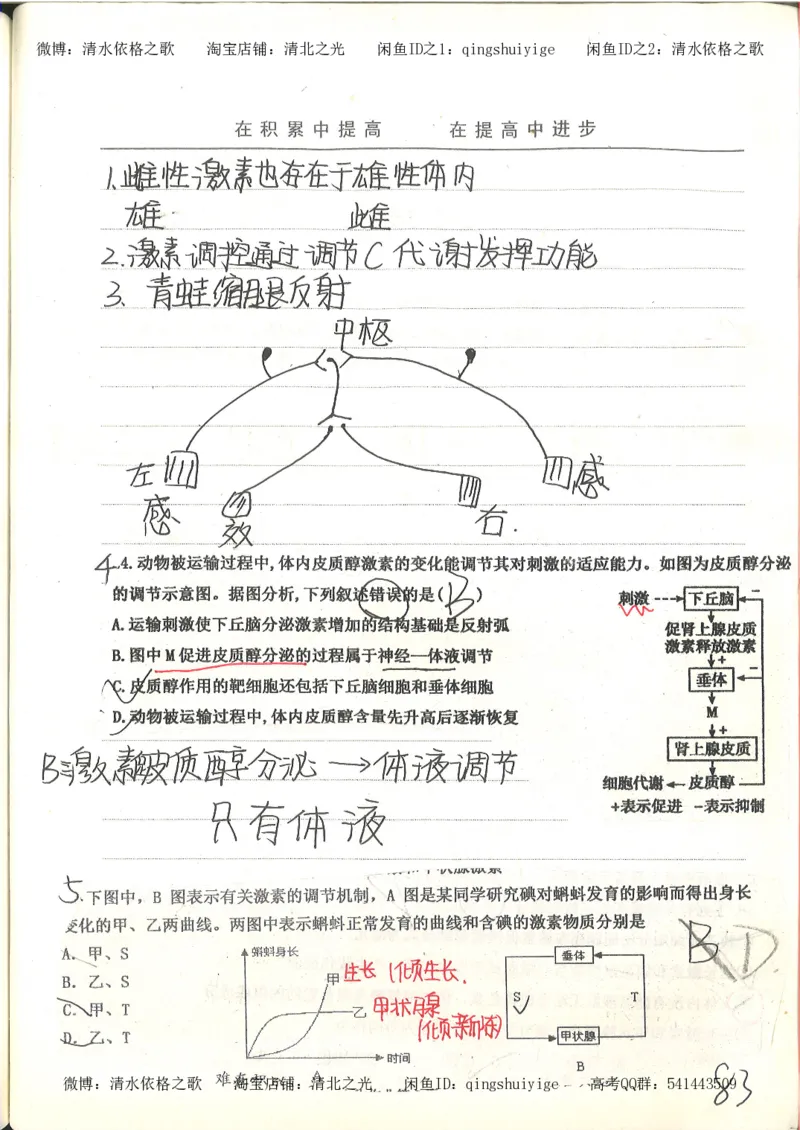 微博：清水依格之歌 淘宝店铺：清北之光 闲鱼ID之1：qingshuiyige 闲鱼ID之2：清水依格之歌
在积累中提高 在提高中进步
1.雌性激素也存在于雄性体内
雄 雌
2.激素调控通过调节C代谢发挥功能
3.青蛙缩腿反射
中枢
左
感
效
右.
感
4.4.动物被运输过程中,体内皮质醇激素的变化能调节其对刺激的适应能力。如图为皮质醇分泌
的调节示意图。据图分析,下列叙述错误的是( B )
A.运输刺激使下丘脑分泌激素增加的结构基础是反射弧
B.图中M促进皮质醇分泌的过程属于神经—体液调节
C.皮质醇作用的靶细胞还包括下丘脑细胞和垂体细胞
D.动物被运输过程中,体内皮质醇含量先升高后逐渐恢复
刺激 下丘脑 −
促肾上腺皮质
激素释放激素
+ −
垂体
M
+
肾上腺皮质
细胞代谢 皮质醇
+表示促进 −表示抑制
皮质醇分泌→体液调节
只有体液
5.下图中，B 图表示有关激素的调节机制，A 图是某同学研究碘对蝌蚪发育的影响而得出身长
变化的甲、乙两曲线。两图中表示蝌蚪正常发育的曲线和含碘的激素物质分别是
B D
A. 甲、S
B. 乙、S
C. 甲、T
D. 乙、T
蝌蚪身长
甲 生长
乙 甲状腺
时间
A
垂体
S T
甲状腺
B
微博：清水依格之歌 淘宝店铺：清北之光 闲鱼ID：qingshuiyige 高考QQ群：541443509
83